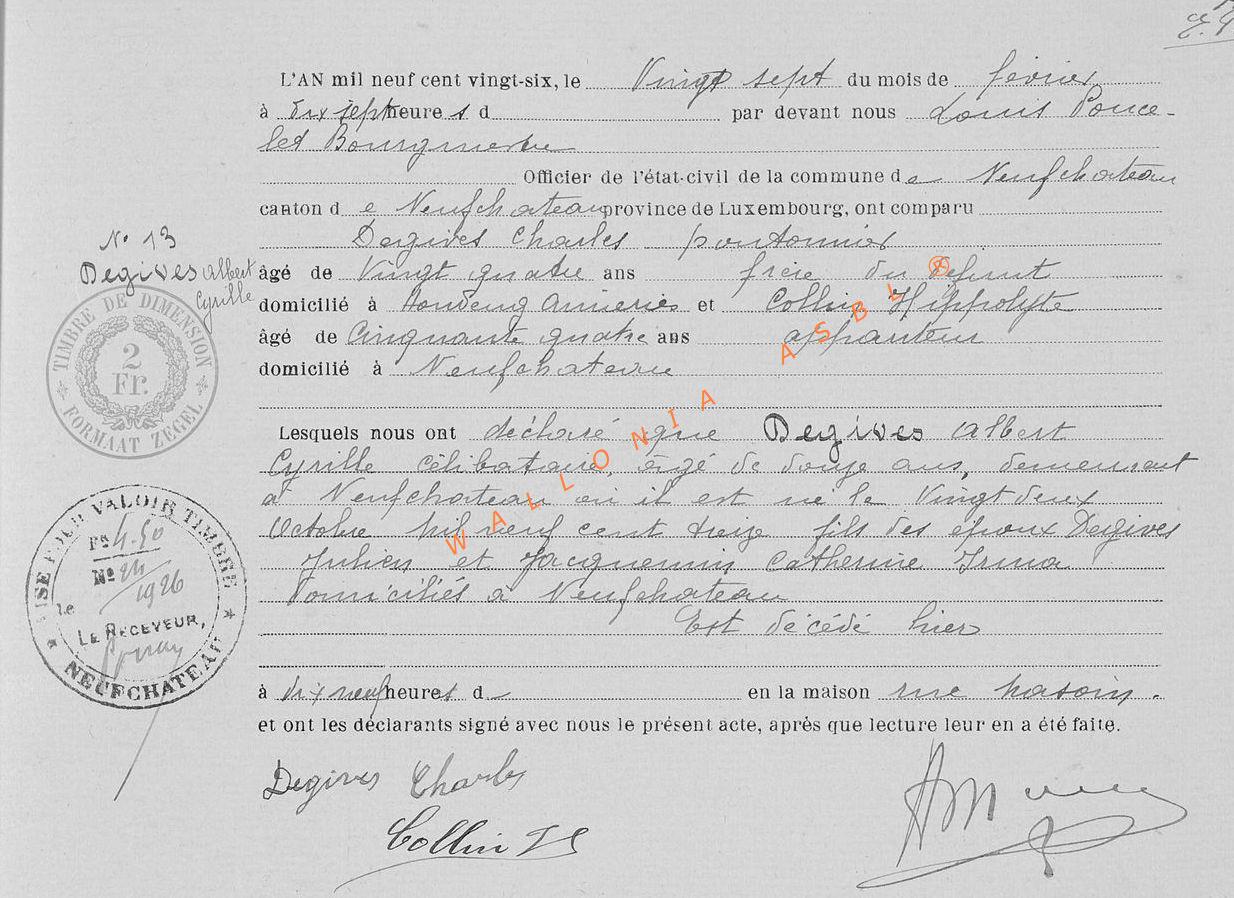 L'AN mil neuf cent vingt-six, le Vingt sept du mois de février
à dix sept heures d par devant nous Louis Ponce-
let Bourgmestre
Officier de l'état-civil de la commune de Neufchateau
canton de Neufchateau province de Luxembourg, ont comparu
Degives Charles pontonnier
âgé de Vingt quatre ans frère du défunt
domicilié à Houdeng Aimeries et Collin Hippolyte
âgé de Cinquante quatre ans appariteur
domicilié à Neufchateau
Lesquels nous ont déclaré que Degives Albert
Cyrille célibataire, âgé de douze ans, demeurant
à Neufchateau où il est né le Vingt deux
Octobre mil neuf cent treize fils des époux Degives
Julien et Jacquemin Catherine Irma
domiciliés à Neufchateau
Est décédé hier
à dix neuf heures d en la maison rue
et ont les déclarants signé avec nous le présent acte, après que lecture leur en a été faite.
Degives Charles
Collin
N° 13
Degives Albert
Cyrille
TIMBRE DE DIMENSION
2
Fr.
FORMAAT ZEGEL
VALOIR TIMBRE
Frs 4.50
N° 24
1926
le
LE RECEVEUR,
NEUFCHATEAU
WALLONIA ASBL ®